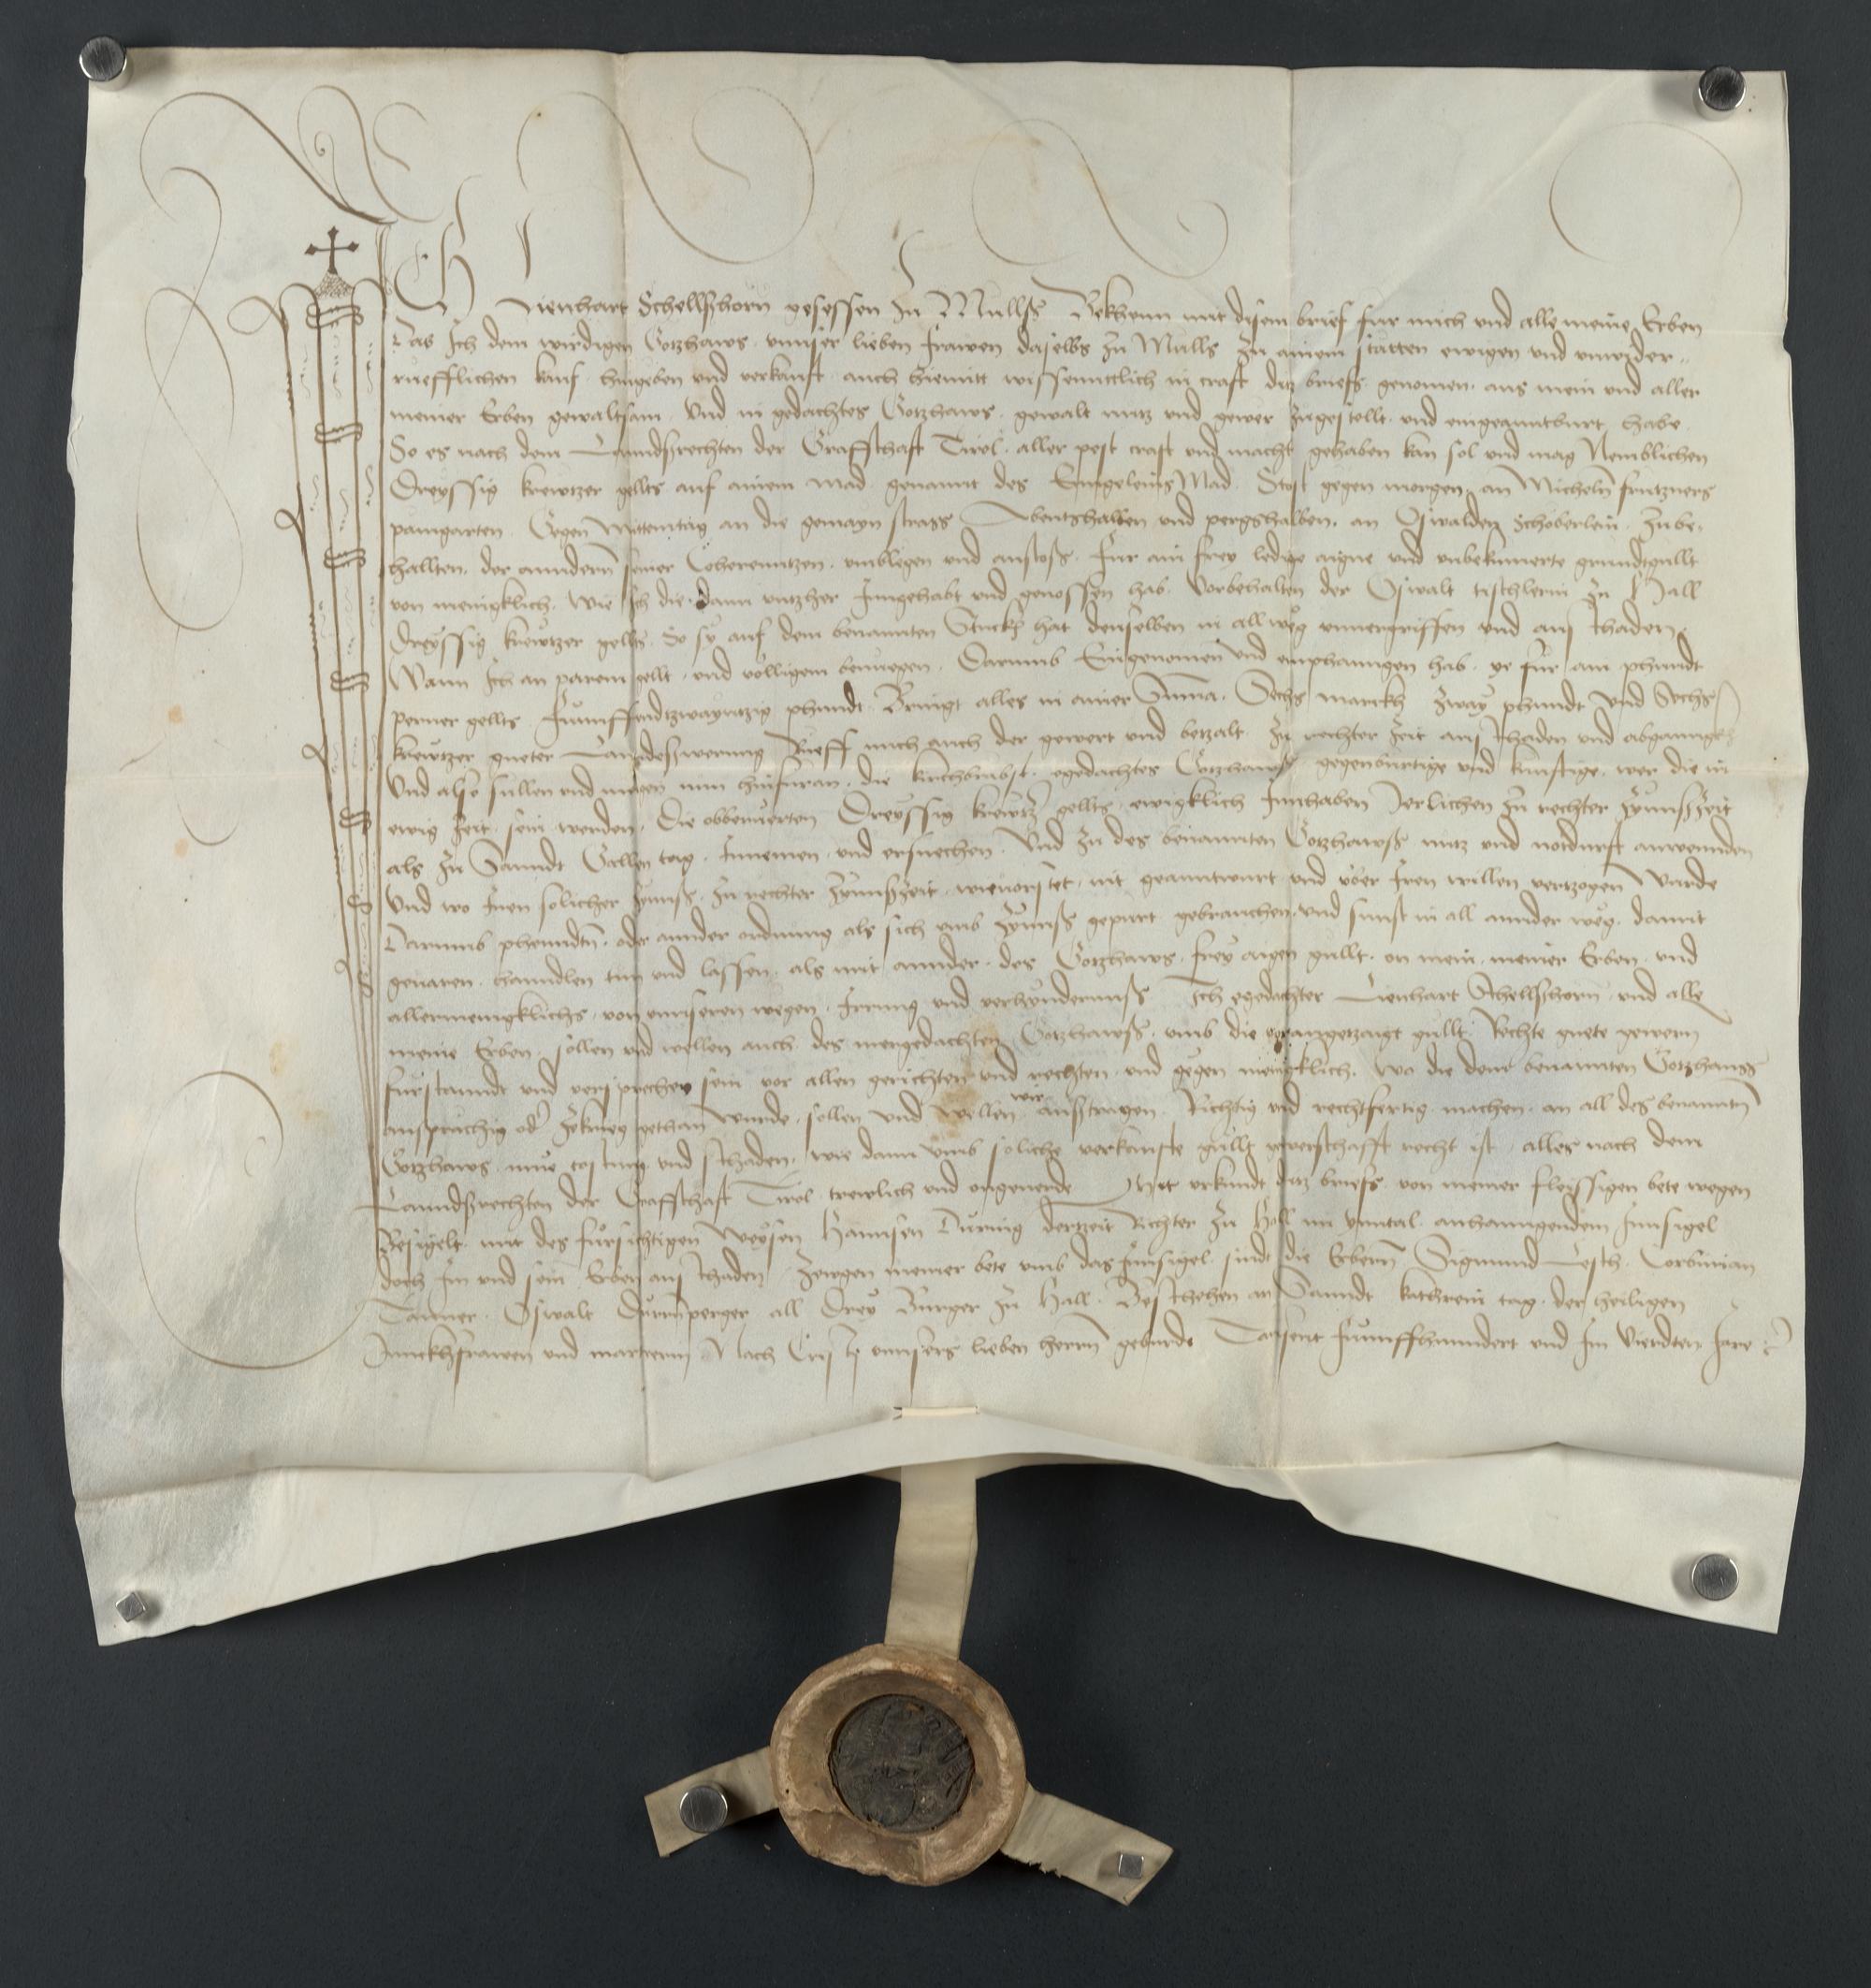 ICH Lienhart Schellshorn gesessen zu Mullss Bekhenn mit disem brief fur mich und alle meine Erben
Das Ich dem wirdigen Gotzhaws unnser lieben frawen daselbs zu Mulls zu ainem statten ewigen und unwider-
ruefflichen kauf hingeben und verkauft auch hiemitt wissenntlich in craft ditz briefs genomen aus mein und aller
meiner Erben gewaltsam Und in gedachtes Gotzhaws gewalt nutz und gewer zugestellt und eingeanntburt habe
So es nach dem Lanndsrechten der Graffschaft Tirol aller pest craft und macht gehaben kan sol und mag Nemblichen
Dreyssig krewtzer gellts auf ainem mad genannt des Mad Stost gegen morgen an Micheln
pamgarten Gegen Mittemtag an die gemayn strass Abentshalben und pergshalben an Oswalden Schoberlein Zube-
hallten der anndern seiner Coherenntzen umblegen und anstoss Fur ain frey ledige aigne und unbekumerte grundtgullt
von menigklich Wie Ich die dann untzher Inngehabt und genossen hab Vorbehalten der Oswalt tischlerin zu Hall
Dreyssig krewtzer gellts So sy auf dem benannten Stuckh hat denselben in allweg unvergriffen und an schaden
Wann Ich an parem gellt und volligem benuegen Darumb Eingenomen und emphanngen hab ye fur ain phundt
perner gellts Funffundtzwayntzig phundt Bringt alles in ainer Suma Sechs marckh zway phundt und Sechs
krewtzer gueter Landesswerung Rueff mich auch der gewert und betzalt zu rechter zeit an schaden und abganngk
Und also sullen und mugen nun hinfuran die kirchbrobst egedachtes Gotzhawss gegenburtige und kunftige wer die in
ewig zeit sein werden Die obberuerten Dreyssig krewtzer gellts ewigklich Innhaben Jerlichen zu rechter Zynnsszeit
als zu Sanndt Gallen tag Innemen und ersuechen Und zu des benannten Gotzhawss nutz und notdurft anwennden
Und wo Inen solicher zynnss zu rechter Zynnsszeit wievorstet nit geanntwurt und uber Iren willen vertzogen wurde
Darumb phenndtn oder annder ordnung als sich umb Zynnss gepurt gebrauchen und sunst in all annder weg damit
gevaren hanndlen tun und lassen als mit annder des Gotzhaws frey aigen gullt on mein meiner Erben und
allermenigklichs von unnseren wegen Irrung und verhynndernuss Ich egedachter Lienhart Schellshorn und alle
meine Erben sollen und wellen auch des mergedachten Gotzhawss umb die gullt Rechte guete gewern
furstanndt und versprecher sein vor allen gerichten und rechten und gegen menigklich Wo die dem benannten Gotzhauss
anspruchig oder zekrieg gethan wurde sollen und wellen wir ausstragen Richtig und rechtfertig machen an all des benanntn
Gotzhaws mue costung und schaden wie dann umb soliche verkaufte gullt gewerschafft recht ist alles nach dem
Lanndsrechten der Graffschaft Tirol trewlich und ongeverde Mit urkundt ditz briefs von meiner fleissigen bete wegen
Besigelt mit des fursichtigen Weysen Hannsen During dertzeit Richter zu Hall im Ynntal anhanngendem Innsigel
doch Im und sein Erben an schaden Zewgen meiner bete umb das Innsigel sindt die Erbern Sigmund Lesch Corbinian
Tanner Oswalt Durrnperger all Drey Burger zu Hall Beschehen an Sanndt kathrein tag der heiligen
Junckhfrawen und martrerin Nach Cristi unnsers lieben herrn geburde Tausent funffhundert und Im Vierdten Jare